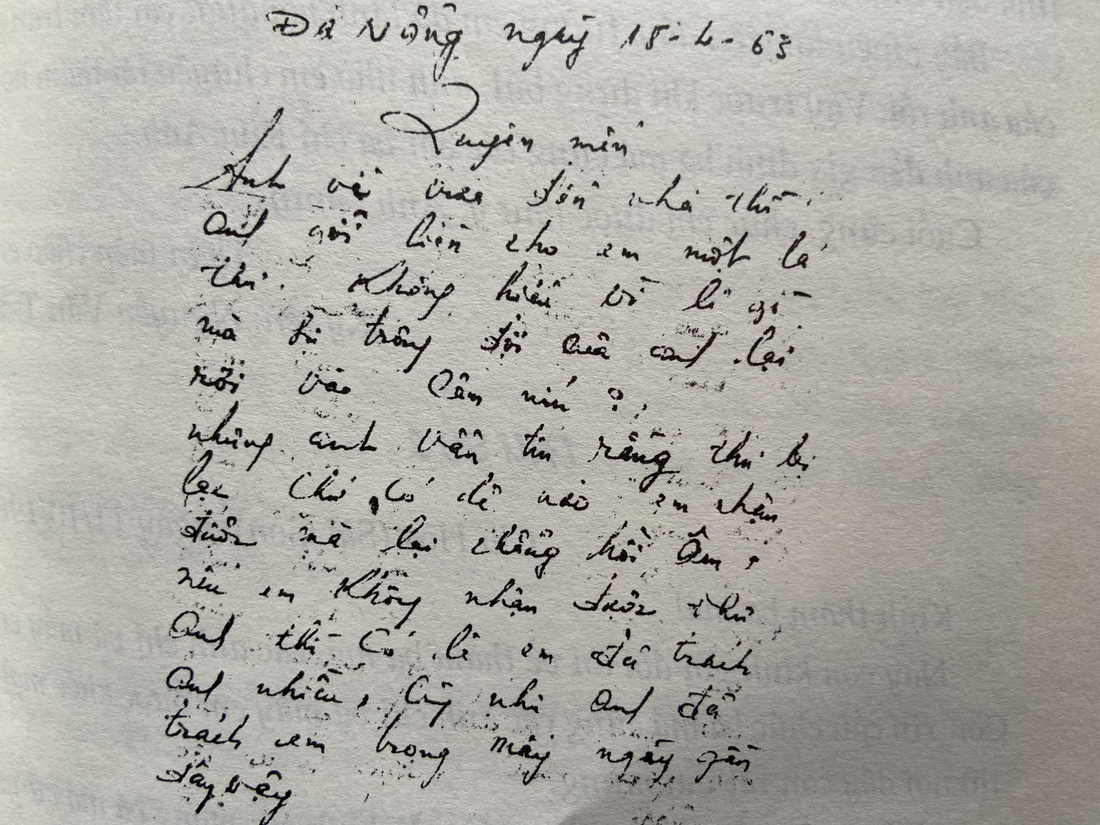 Đà Nẵng ngày 18-4-63
Quyên mến
Anh về vừa đến nhà thì
anh gởi liền cho em một lá
thư. Không hiểu vì lí gì
mà sự trông đợi của anh lại
rơi vào câm nín ?
nhưng anh vẫn tin rằng thư bị
lạc chứ có lẽ nào em nhận
được mà lại chẳng hồi âm,
nếu em không nhận được thư
anh thì có lẽ em đã trách
anh nhiều, cũng như anh đã
trách em trong mấy ngày gần
đây vậy